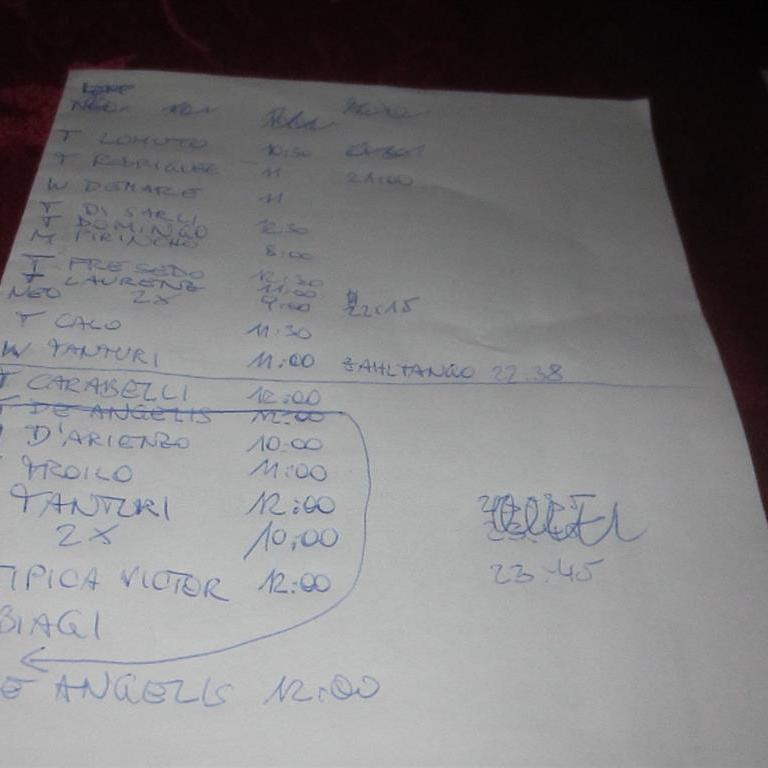 T LOMUTO 10:30
T RODRIGUEZ 11 21:00
W DEMARE 11
T DI SARLI 12:30
T DOMINGO
M PIRINCHO 8:00
T FRESEDO 12:30
T LAURENZ 11:00
NEO 2X 9:00 22:15
T CALO 11:30
W TANTURI 11:00 ZAHLTANGO 22.38
T CARABELLI 12:00
DE ANGELIS 12:00
D'ARIENZO 10:00
TROILO 11:00
TANTURI 12:00
2X 10:00
TIPICA VICTOR 12:00
23:45
BIAGI
E ANGELIS 12:00